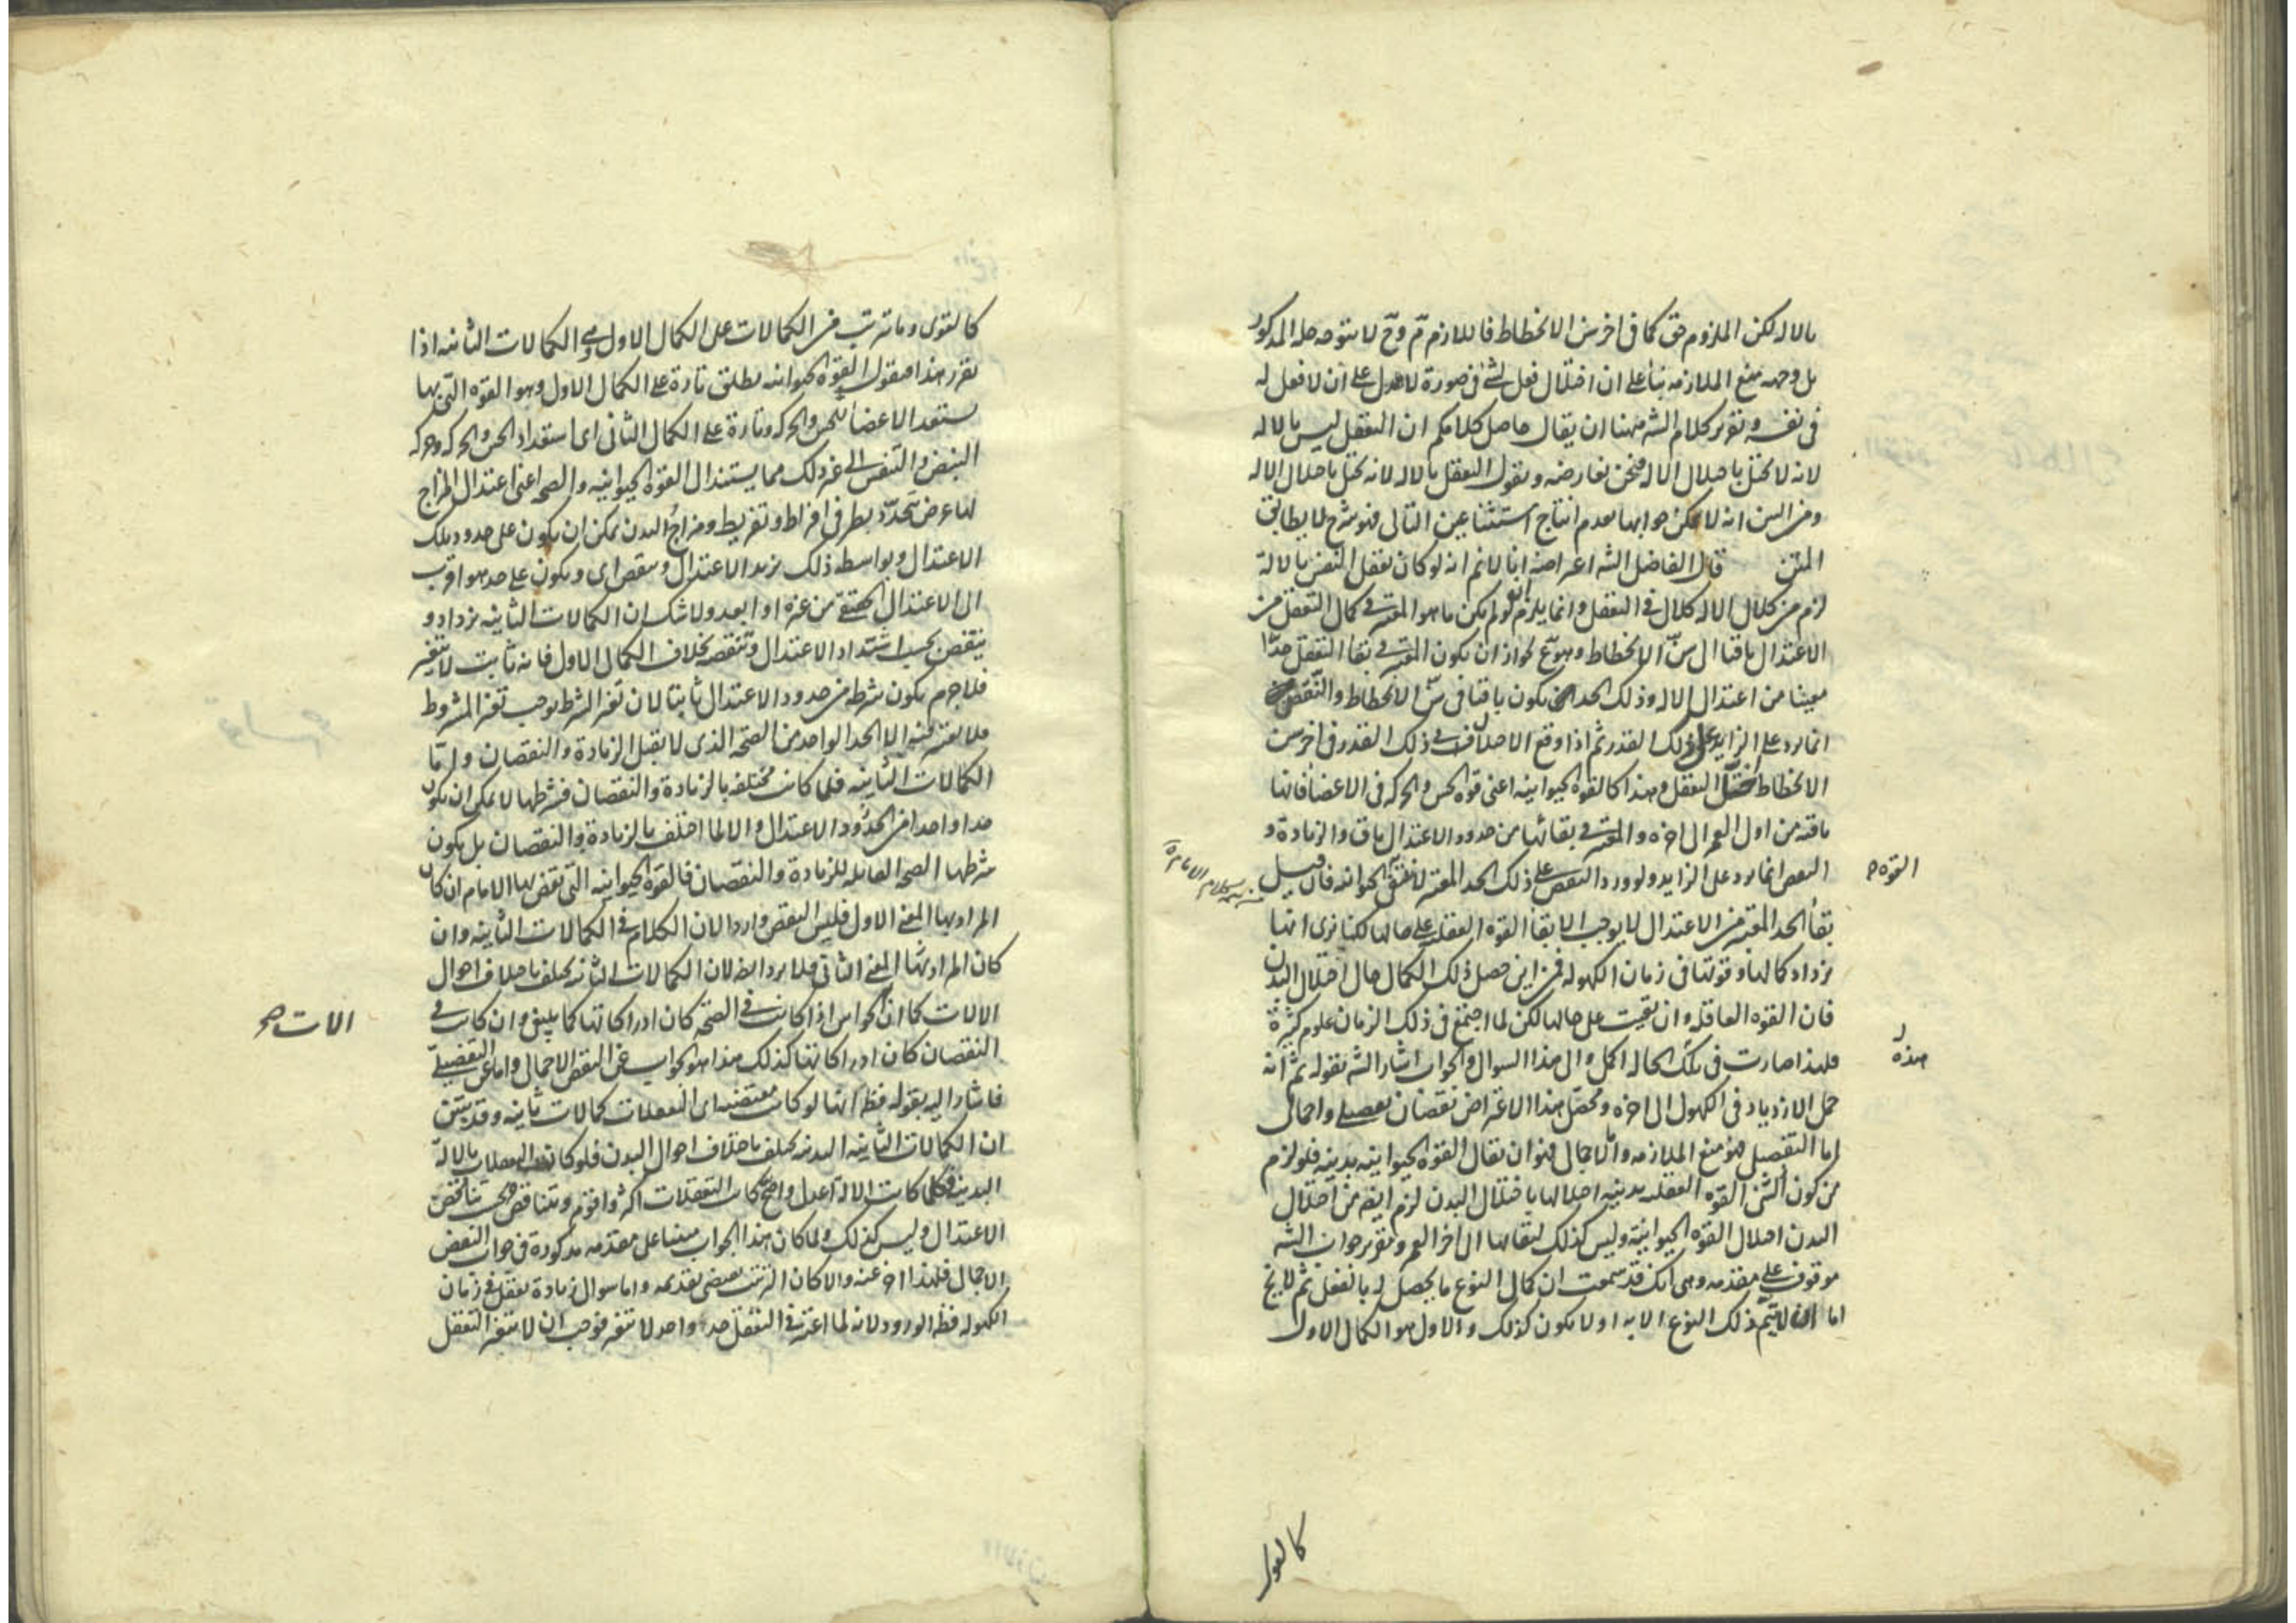 بالاله لكن الملزوم حق كما فى اخر سن الانحطاط فاللازم مّ وح لا يتوجه حله المذكور
بل وجهه منع الملازمه بنأ على ان اختلال فعل لشئ فى صورة لا يدل على ان لا فعل له
فى نفسه وتقرير كلام الشه مهنا ان يقال حاصل كلامكم ان التعقل ليس بالاله
لانه لا يختل باختلال الاله فنحن نعارضه ونقول التعقل بالاله لانه يختل باختلال الاله
ومن البين انه لا يمكن جوابها بعدم انتاج استثنا عين التالى فهو شرح لا يطابق
المتن قال الفاضل الشه اعراضه انا لانم انه لو كان تعقل النفس بالالة
لزم من كلال الاله كلال فى التعقل وانما يلزم لو لم يكن ما هو المعتبر فى كمال التعقل من
الاعتدال باقيا الى سنّ الانحطاط وهو مّ لجواز ان يكون المعتبر فى بقا التعقل حدّا
معينا من اعتدال الاله وذلك الحد يكون باقيا فى سنّ الانحطاط والنقص
انما يرد على الزايد على ذلك القدر ثم اذا وقع الاختلاف فى ذلك القدر فى اخر سن
الانحطاط اختل التعقل وهذا كالقوه الحيوانيه اعنى قوه الحس والحركه فى الاعضأ فانها
باقيه من اول العمر الى اخره والمعتبر فى بقائها من حدود الاعتدال باق والزيادة و
النقص انما يرد على الزايد ولو ورد النقص على ذلك الحد المعتبر لا يبقى الحيوانيه فان قيل
القوه صح
بقأ الحد المعتبر من الاعتدال لا يوجب الا بقأ القوه العقليه على حالها لكنا نرى انها
يزداد كمالها وقوتها فى زمان الكهوله فمن اين حصل ذلك الكمال حال اختلال البدن
فان القوه العاقله وان بقيت على حالها لكن لما اجتمع فى ذلك الزمان علوم كثيرة
فلهذا صارت فى تلك الحاله اكمل والى هذا السوال والجواب اشار الشه بقوله ثم انه
هذه
حمل الازدياد فى الكهول الى اخره ومحصل هذا الاعتراض نقضان تفصيلى واجمالى
اما التفصيل فهو منع الملازمه واما الاجمال فهو ان يقال القوه الحيوانيه بدنيه فلو لزم
من كون القوه العقليه بدنيه اختلالها باختلال البدن لزم ايضه من اختلال
البدن اختلال القوه الحيوانية وليس كذلك لبقائها الى اخر العمر وتقرير جواب الشه
موقوف على مقدمه وهى انك قد سمعت ان كمال النوع ما يحصل له بالفعل ثم لا يخ
اما ان لا يتم ذلك النوع الا به او لا يكون كذلك والاول هو الكمال الاول
كالقوى
كالقوى وما ترتب من الكمالات على الكمال الاول هى الكمالات الثانيه اذا
تقرر هذا فنقول القوه الحيوانيه يطلق تارة على الكمال الاول وهو القوه التى بها
يستعد الاعضأ للحس والحركه وتارة على الكمال الثانى اى استعداد الحس والحركه وحركه
النبض والتنفس الى غير ذلك مما يستند الى القوه الحيوانيه والصحه اعنى اعتدال المزاج
لها عرض يتحدد بطرفى افراط وتفريط ومزاج البدن يمكن ان يكون على حدود تلك
الاعتدال وبواسطه ذلك يزيد الاعتدال وينقص اى ويكون على حد هو اقرب
الى الاعتدال الحقيقى من غيره او ابعد ولا شك ان الكمالات الثانيه يزداد و
ينقص بحسب اشتداد الاعتدال وتنقصه بخلاف الكمال الاول فانه ثابت لا يتغير
فلاجرم يكون شرطه من حدود الاعتدال ثابتا لان تغير الشرط يوجب تغير المشروط
فلا يعتبر فيه الا الحد الواحد من الصحه الذى لا يقبل الزيادة والنقصان واما
الكمالات الثانيه فلما كانت مختلفه بالزيادة والنقصان فشرطها لا يمكن ان يكون
حدا واحدا من الحدود الاعتدال والا لما اختلف بالزيادة والنقصان بل يكون
شرطها الصحه القابله للزيادة والنقصان فالقوه الحيوانيه التى نقض بها الامام ان كان
المراد بها المعنى الاول فليس النقض واردا لان الكلام فى الكمالات الثانيه وان
كان المراد بها المعنى الثانى فلا يرد ايضه لان الكمالات الثانيه يختلف باختلاف احوال
الالات كما ان الحواس اذا كانت فى الصحه كان ادراكاتها كما يليق وان كانت فى
الالات صح
النقصان كان ادراكاتها كذلك هذا هو الجواب عن النقض الاجمالى واما عن التفصيلى
فاشار اليه بقوله فظه انها لو كانت مقتضيه اى التعقلات كمالات ثانيه وقد تبين
ان الكمالات الثانيه البدنيه يختلف باختلاف احوال البدن فلو كانت التعقلات بالالة
البدنيه فكلما كانت الالة اعدل واصح كانت التعقلات اكثر واقوى وتتناقص بحسب تناقص
الاعتدال وليس كذلك ولما كان هذا الجواب مبنيا على مقدمه مذكورة فى جواب النقض
الاجمالى فلهذا اخر عنه والا كان الترتيب يقتضى تقديمه واما سوال زيادة تعقل فى زمان
الكهوله فظه الورود لانه لما اعتبر فى التعقل حد واحد لا يتغير فوجب ان لا يتغير التعقل